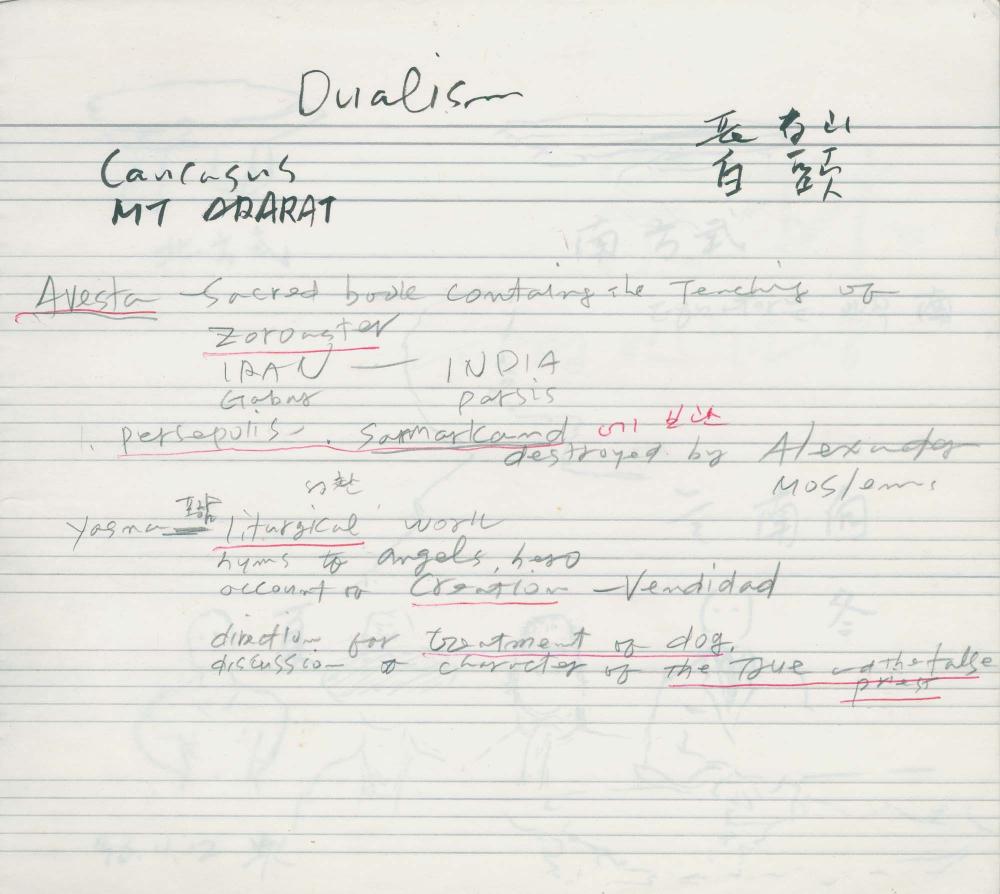 Dualism
長白山
白頭
Caucasus
MT ARARAT
Avesta - Sacred book containg the Teaching of
Zoroaster
IRAN — INDIA
Gabar Parsis
1. persepolis -. Sarmarkand 에 보관
destroyed by Alexander
Moslems
Yasna liturgical work
hyms to angels, hero
account of Creation - Vendidad
direction for treatment of dog.
discussion of character of the True and the false
priest